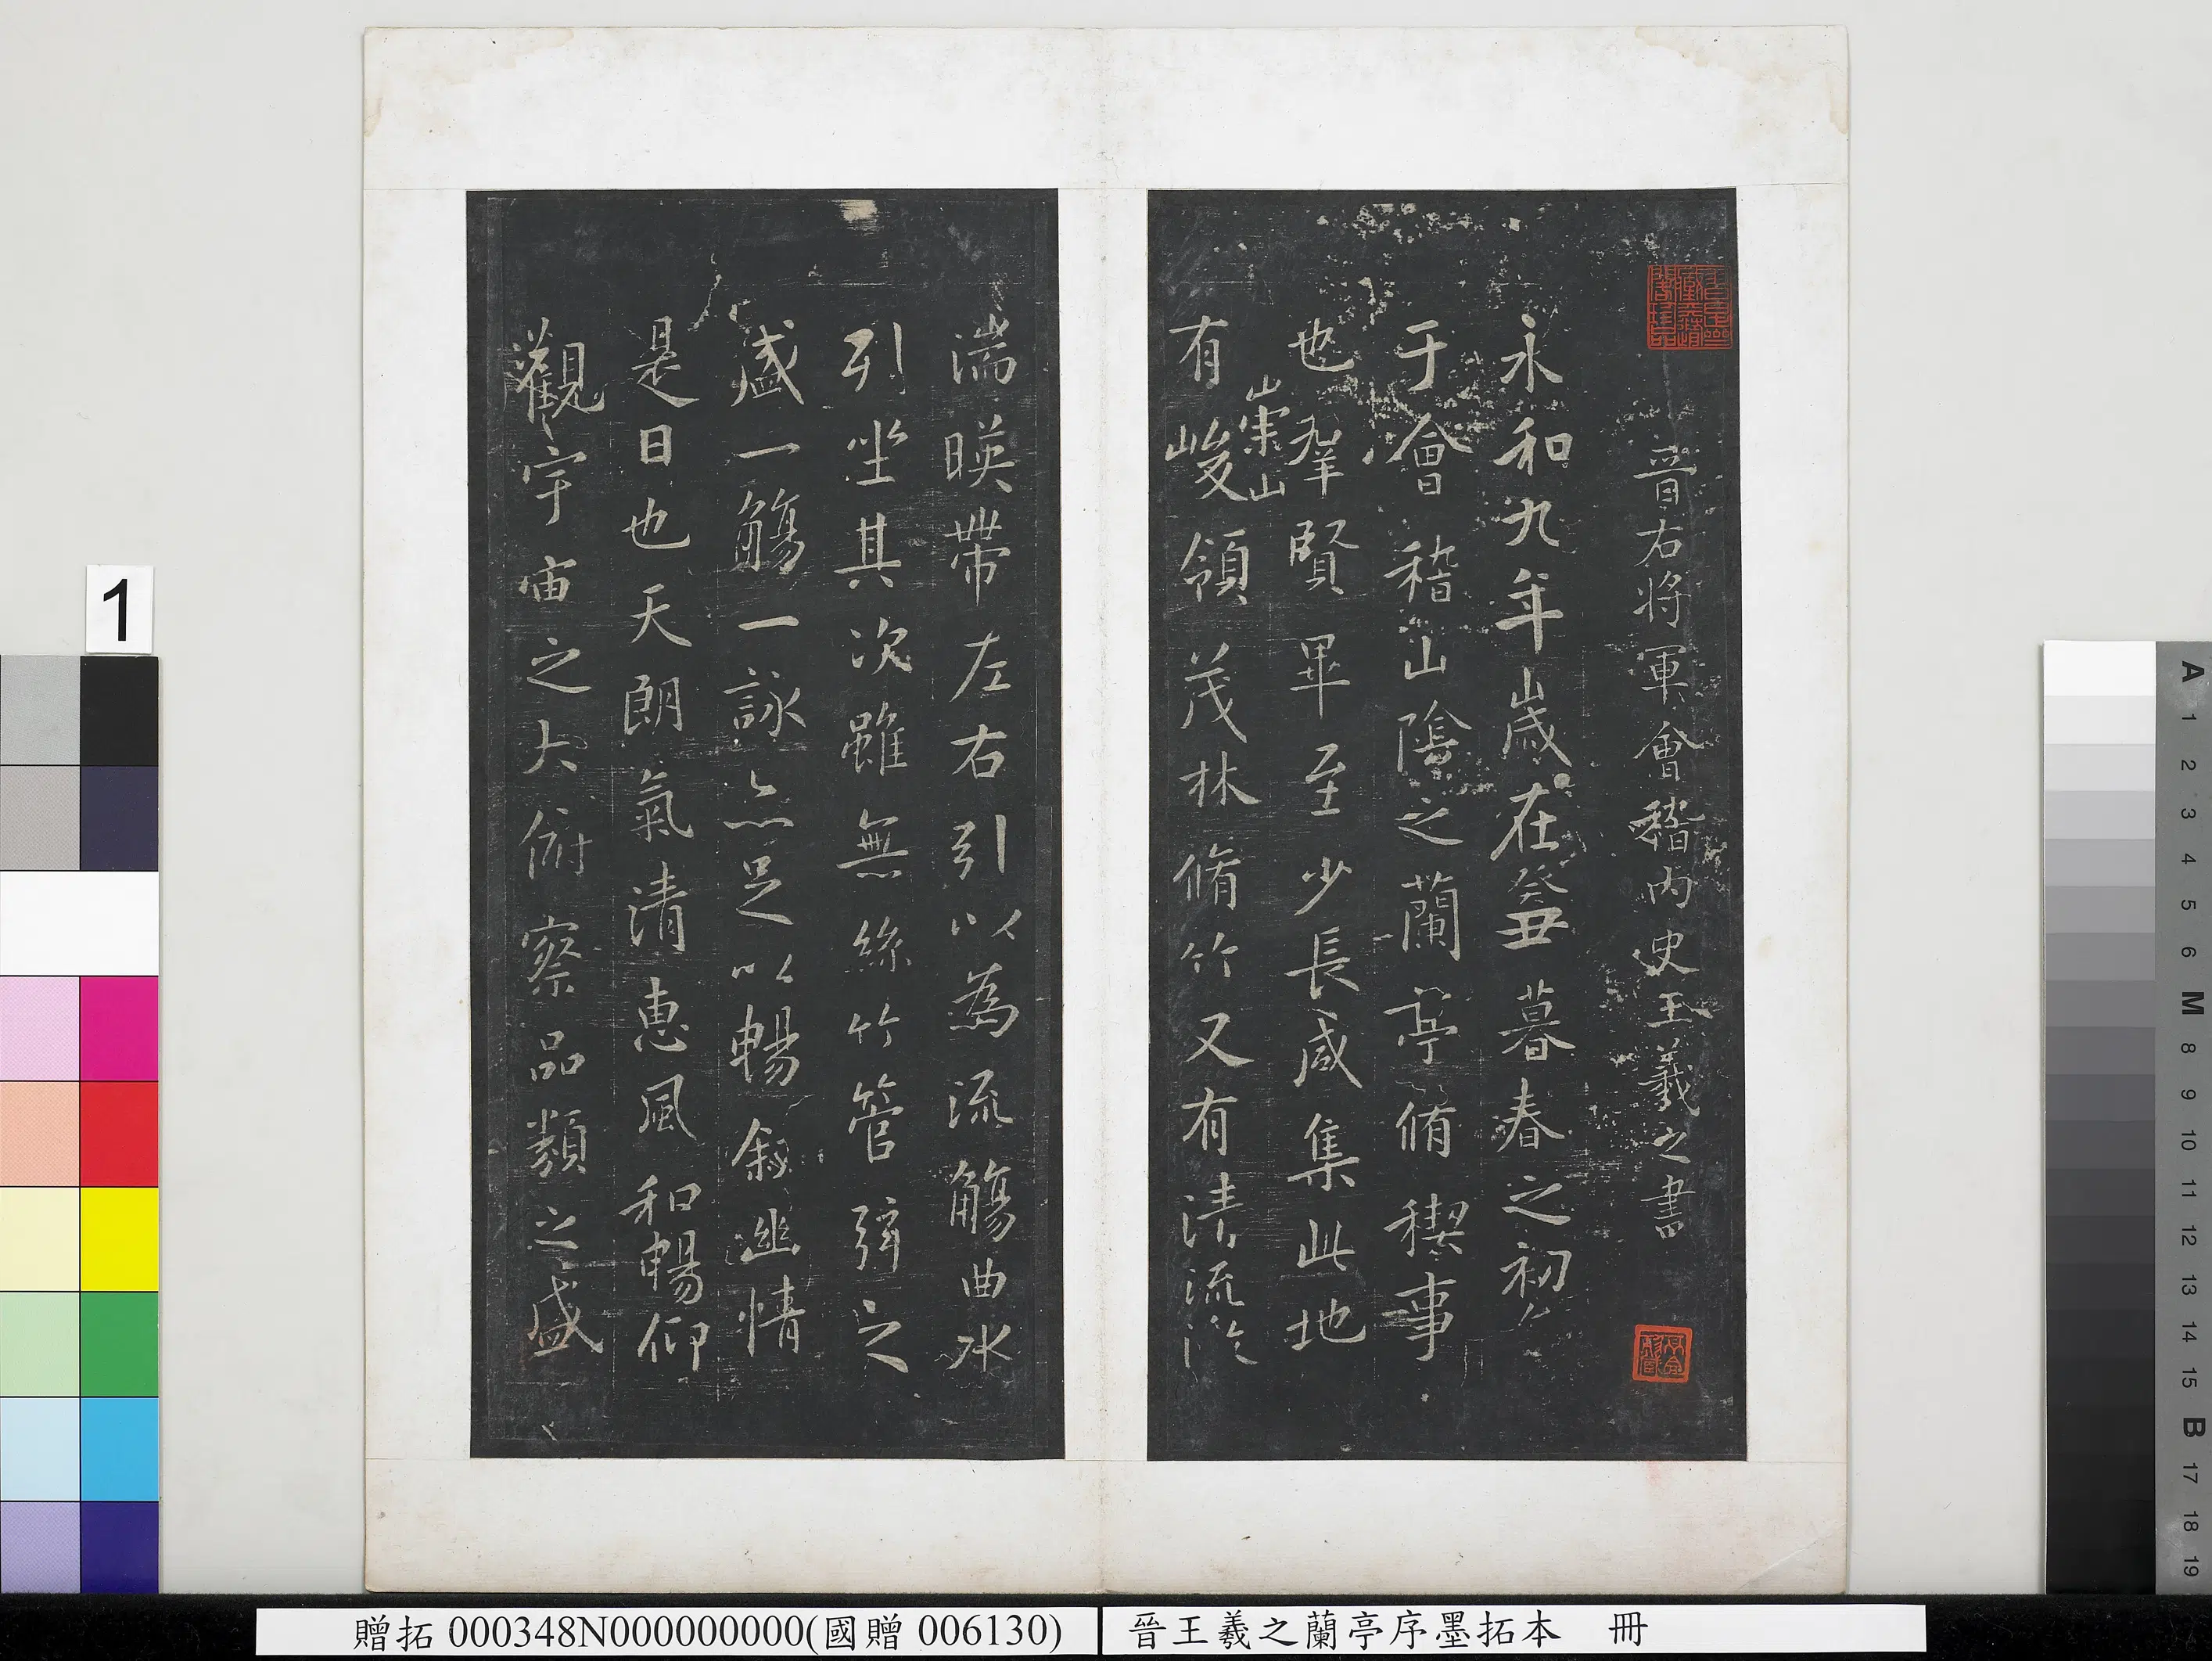 晉右將軍會稽內史王羲之書
永和九年歲在癸丑暮春之初
于會稽山陰之蘭亭脩稧事
也羣賢畢至少長咸集此地
崇山
有峻領茂林脩竹又有清流
湍暎帶左右引以為流觴曲水
列坐其次雖無絲竹管弦之
盛一觴一詠亦足以暢敘幽情
是日也天朗氣清惠風和暢仰
觀宇宙之大俯察品類之盛
1
A
1
2
3
4
5
6
M
8
9
10
11
12
13
14
15
B
17
18
19
贈拓 000348N000000000(國贈 006130)
晉王羲之蘭亭序墨拓本　冊